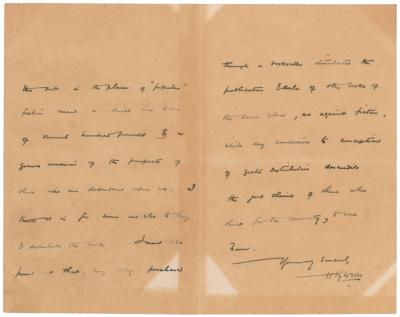 this book in the place of "popular"
fiction means a direct loss to me
of several hundred pounds & a
grave invasion of the prospects of
those who are dependent upon me. I
think it is for some one else to buy
& distribute the book. I must also
point out that any copy purchased
through a bookseller stimulates the
publication & sale of other books of
the same class, as against fiction,
while any concession to conceptions
of gratis distribution discredits
the just claims of those who
think for the country, to
Yours
Yours sincerely
H G Wells